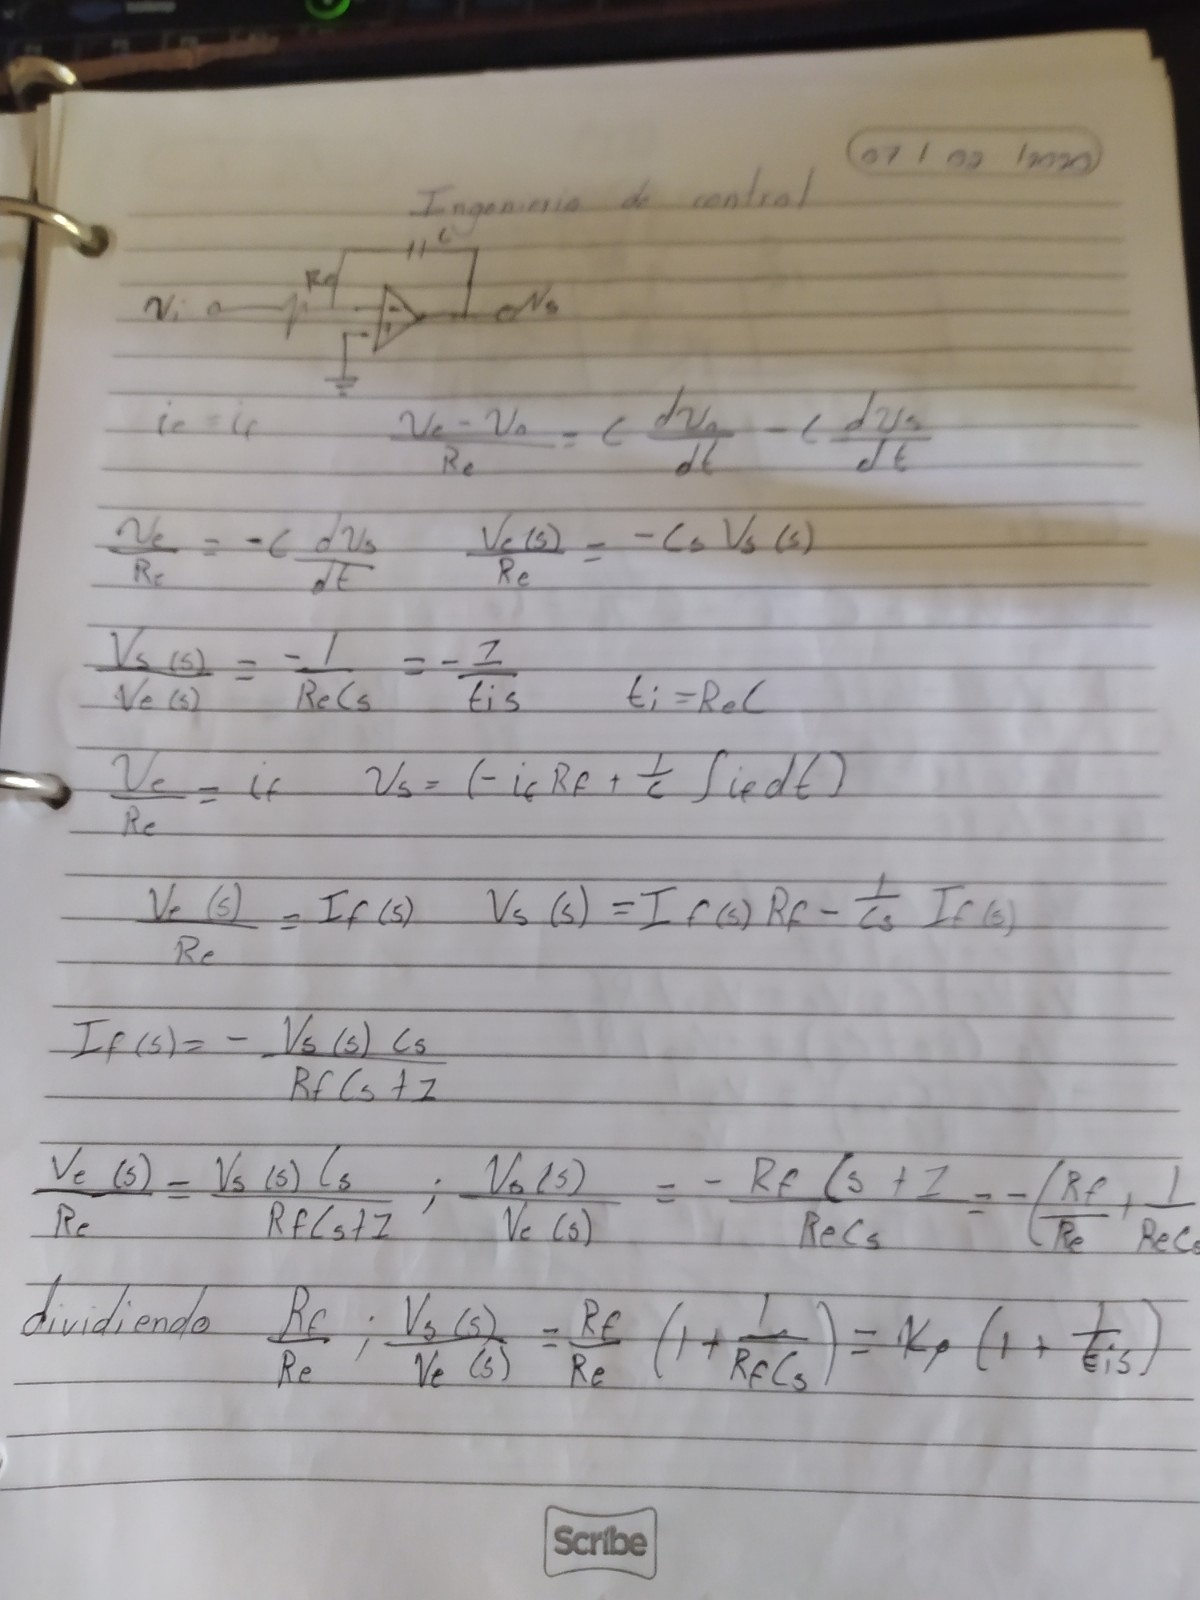 07 / 02 / 2020
Ingenieria de control
C
Re
Vi Vs
- +
ie = if (Ve - Va)/Re = C dVa/dt - C dVs/dt
Ve/Re = -C dVs/dt Ve(s)/Re = -Cs Vs(s)
Vs(s)/Ve(s) = -1/ReCs = -1/tis ti = ReC
Ve/Re = if Vs = (-if Rf + 1/c ∫if dt)
Ve(s)/Re = If(s) Vs(s) = If(s) Rf - 1/Cs If(s)
If(s) = - Vs(s) Cs/RfCs+1
Ve(s)/Re = Vs(s) Cs/RfCs+1 ; Vs(s)/Ve(s) = - RfCs+1/ReCs = -(Rf/Re + 1/ReCs
dividiendo Rf/Re ; Vs(s)/Ve(s) = Rf/Re (1 + 1/RfCs) = Kp (1 + 1/tis)
Scribe